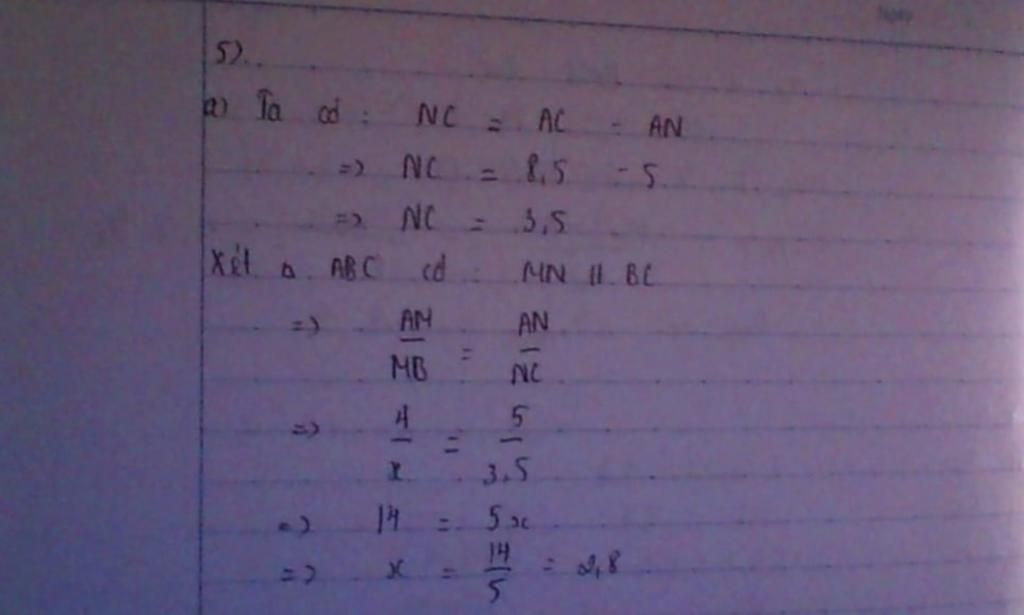 Ngày
5).
a) Ta có : NC = AC - AN
=> NC = 8,5 - 5
=> NC = 3,5
Xét Δ ABC có : MN // BC
=> AM/MB = AN/NC
=> 4/x = 5/3,5
=> 14 = 5x
=> x = 14/5 = 2,8